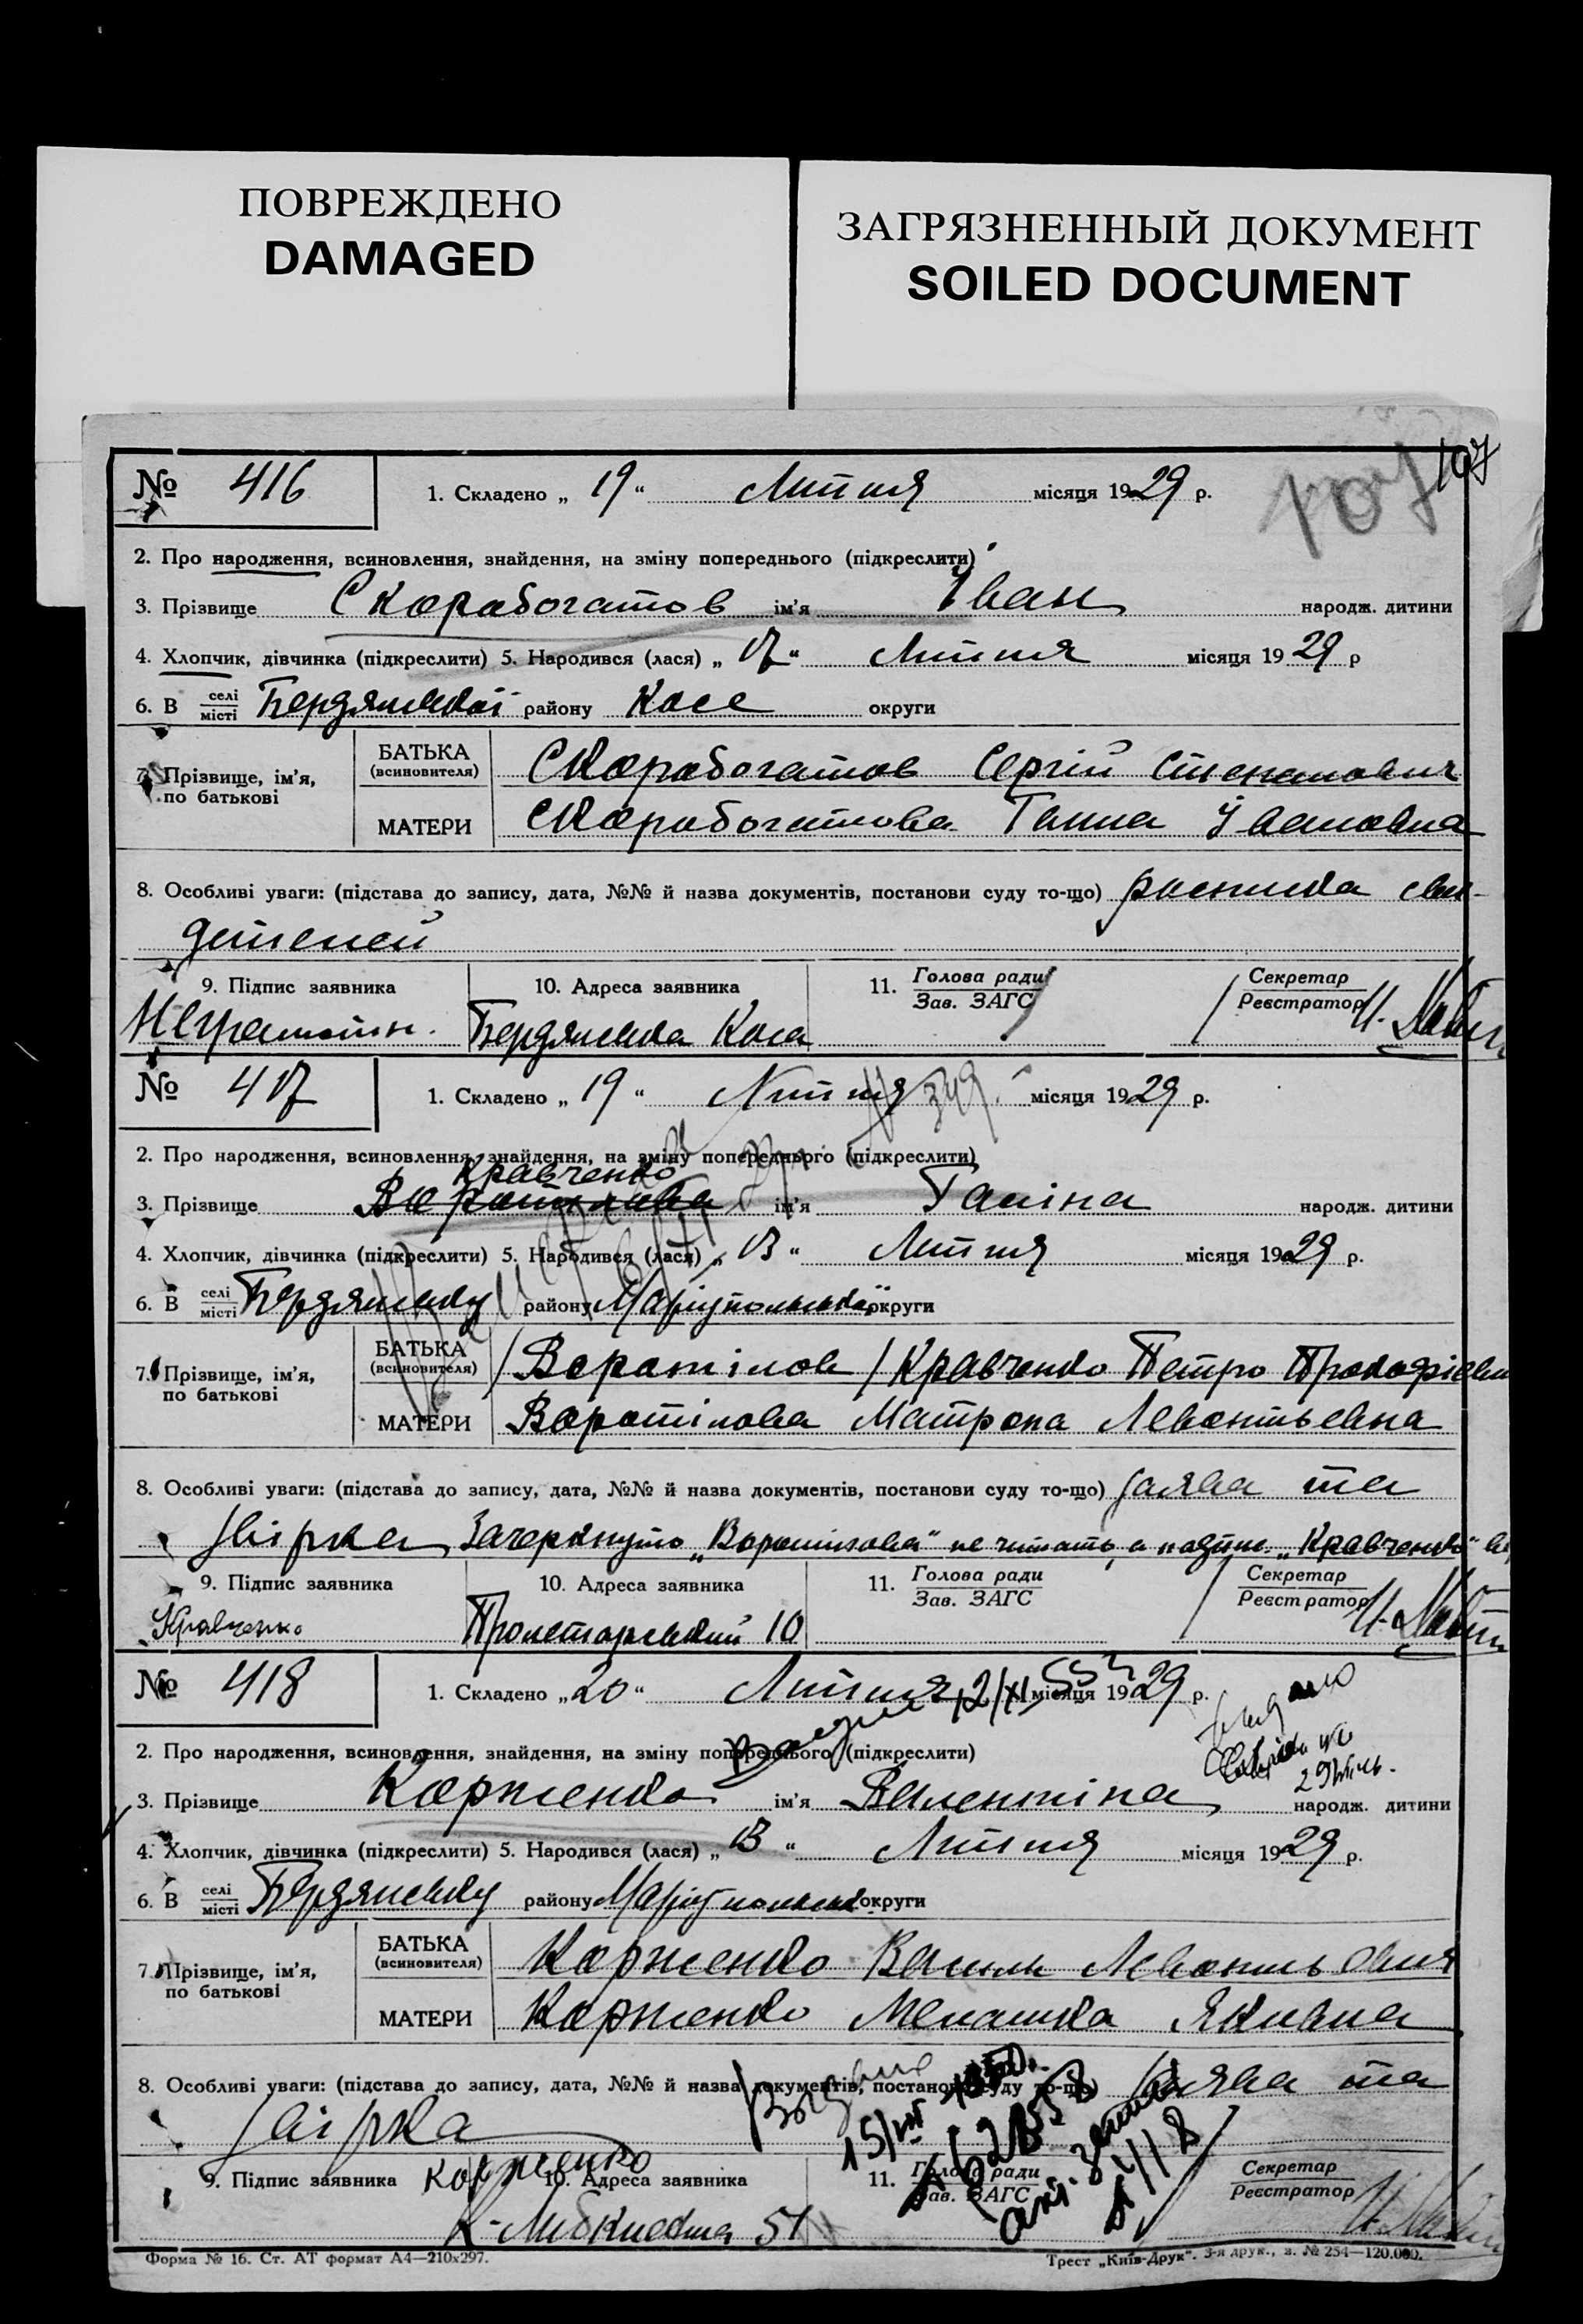 ПОВРЕЖДЕНО
DAMAGED
ЗАГРЯЗНЕННЫЙ ДОКУМЕНТ
SOILED DOCUMENT
107
107
№ 416 1. Складено „ 19 “ Липня місяця 1929 р.
2. Про народження, всиновлення, знайдення, на зміну попереднього (підкреслити)
3. Прізвище Скоработатов ім'я Іван народж. дитини
4. Хлопчик, дівчинка (підкреслити) 5. Народився (лася) „ 17 “ Липня місяця 19 29 р
6. В селі місті Бердянській району Косе округи
7. Прізвище, ім'я, по батькові БАТЬКА (всиновителя) Скорабогатов Сергій Степанович
МАТЕРИ Скорабогатова Ганна Івановна
8. Особливі уваги: (підстава до запису, дата, №№ й назва документів, постанови суду то-що) росписка сви-
детелей
9. Підпис заявника 10. Адреса заявника 11. Голова ради Зав. ЗАГС Секретар Реєстратор
Неграмотн. Бердянска Коса
№ 417 1. Складено „ 19 “ Липня місяця 1929 р.
2. Про народження, всиновлення, знайдення, на зміну попереднього (підкреслити)
Кравченко
3. Прізвище Воротилова ім'я Галіна народж. дитини
4. Хлопчик, дівчинка (підкреслити) 5. Народився (лася) „ 13 “ Липня місяця 1929 р.
6. В селі місті Бердянську району Маріупольської округи
7. Прізвище, ім'я, по батькові БАТЬКА (всиновителя) /Воротілов/ Кравченко Петро Прокофієвич
МАТЕРИ Воротілова Матрона Левонтьевна
8. Особливі уваги: (підстава до запису, дата, №№ й назва документів, постанови суду то-що) заява та
звірка Зачеркнуто „Воротілова“ не читать, а надпис. „Кравченко“
9. Підпис заявника 10. Адреса заявника 11. Голова ради Зав. ЗАГС Секретар Реєстратор
Кравченко Пролетарський 10
№ 418 1. Складено „ 20 “ Липня місяця 1929 р.
2. Про народження, всиновлення, знайдення, на зміну попереднього (підкреслити)
3. Прізвище Корженко ім'я Валентіна народж. дитини
4. Хлопчик, дівчинка (підкреслити) 5. Народився (лася) „ 13 “ Липня місяця 1929 р.
6. В селі місті Бердянську району Маріупольськ округи
7. Прізвище, ім'я, по батькові БАТЬКА (всиновителя) Корженко Василь Левонтьович
МАТЕРИ Корженко Меланка Якивна
8. Особливі уваги: (підстава до запису, дата, №№ й назва документів, постанови суду то-що) заява та
звірка
9. Підпис заявника Корженко 10. Адреса заявника 11. Голова ради Зав. ЗАГС Секретар Реєстратор
К-Лібкнехта 51
Форма № 16. Ст. АТ формат А4—210х297.
Трест „Київ-Друк“. 3-я друк., з. № 254—120.000.